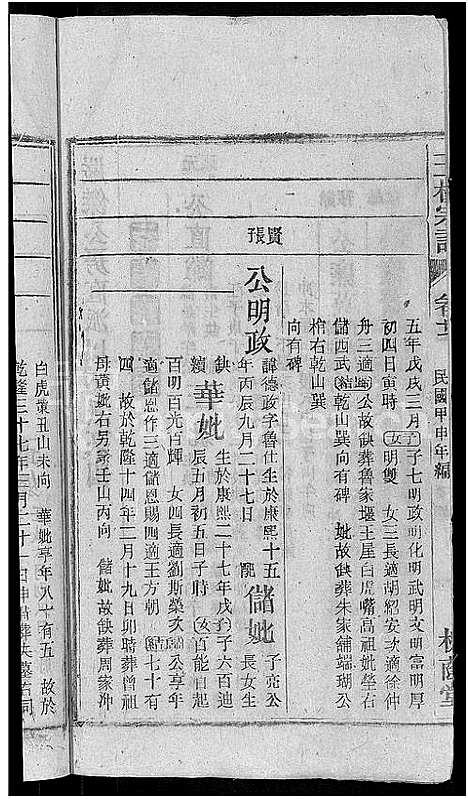 卷七 民國甲申年編
五年戊戌三月子七明政明化明武明文明富明厚
初四日寅時女明雙 女三長適胡紹安次適徐仲
舟三適 公故缺葬魯家堰王屋白虎嘴高祖妣塋右
儲四武結乾山巽向有碑 妣故缺葬朱家舖瑞瑚公
棺右乾山巽
向有碑
賢
張
公明政
諱德政字魯仕生於康熙十五 配儲妣 子亮公
年丙辰九月二十七日 長女生
缺 華妣 生於康熙二十七年戊子子六百迪
續 辰五月初五日子時女百能百起
百明百光百輝 女四長適劉斯榮次 公享年
適儲恩作三適儲恩賜四適王方朝結七十有
四 故於乾隆十四年二月十九日卯時葬曾祖
母黃妣右另冢壬山丙向 儲妣故缺葬周家沖
白虎 丑山未向 華妣享年八十有五 故於
乾隆三十七年三月二十